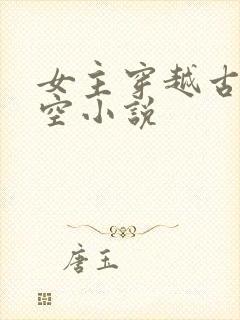 女主穿越古
空小說
唐玉